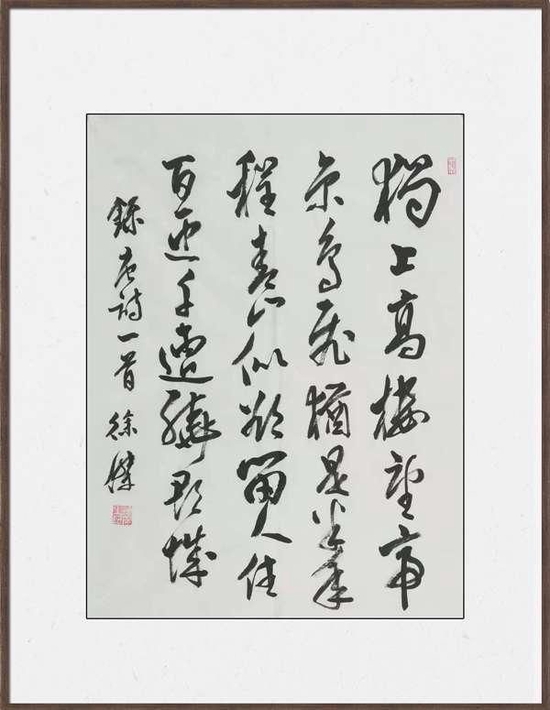 獨上高樓望帝
京鳥飛猶是半年
程青山似欲留人住
百匝千遭繞郡城
錄唐詩一首 徐